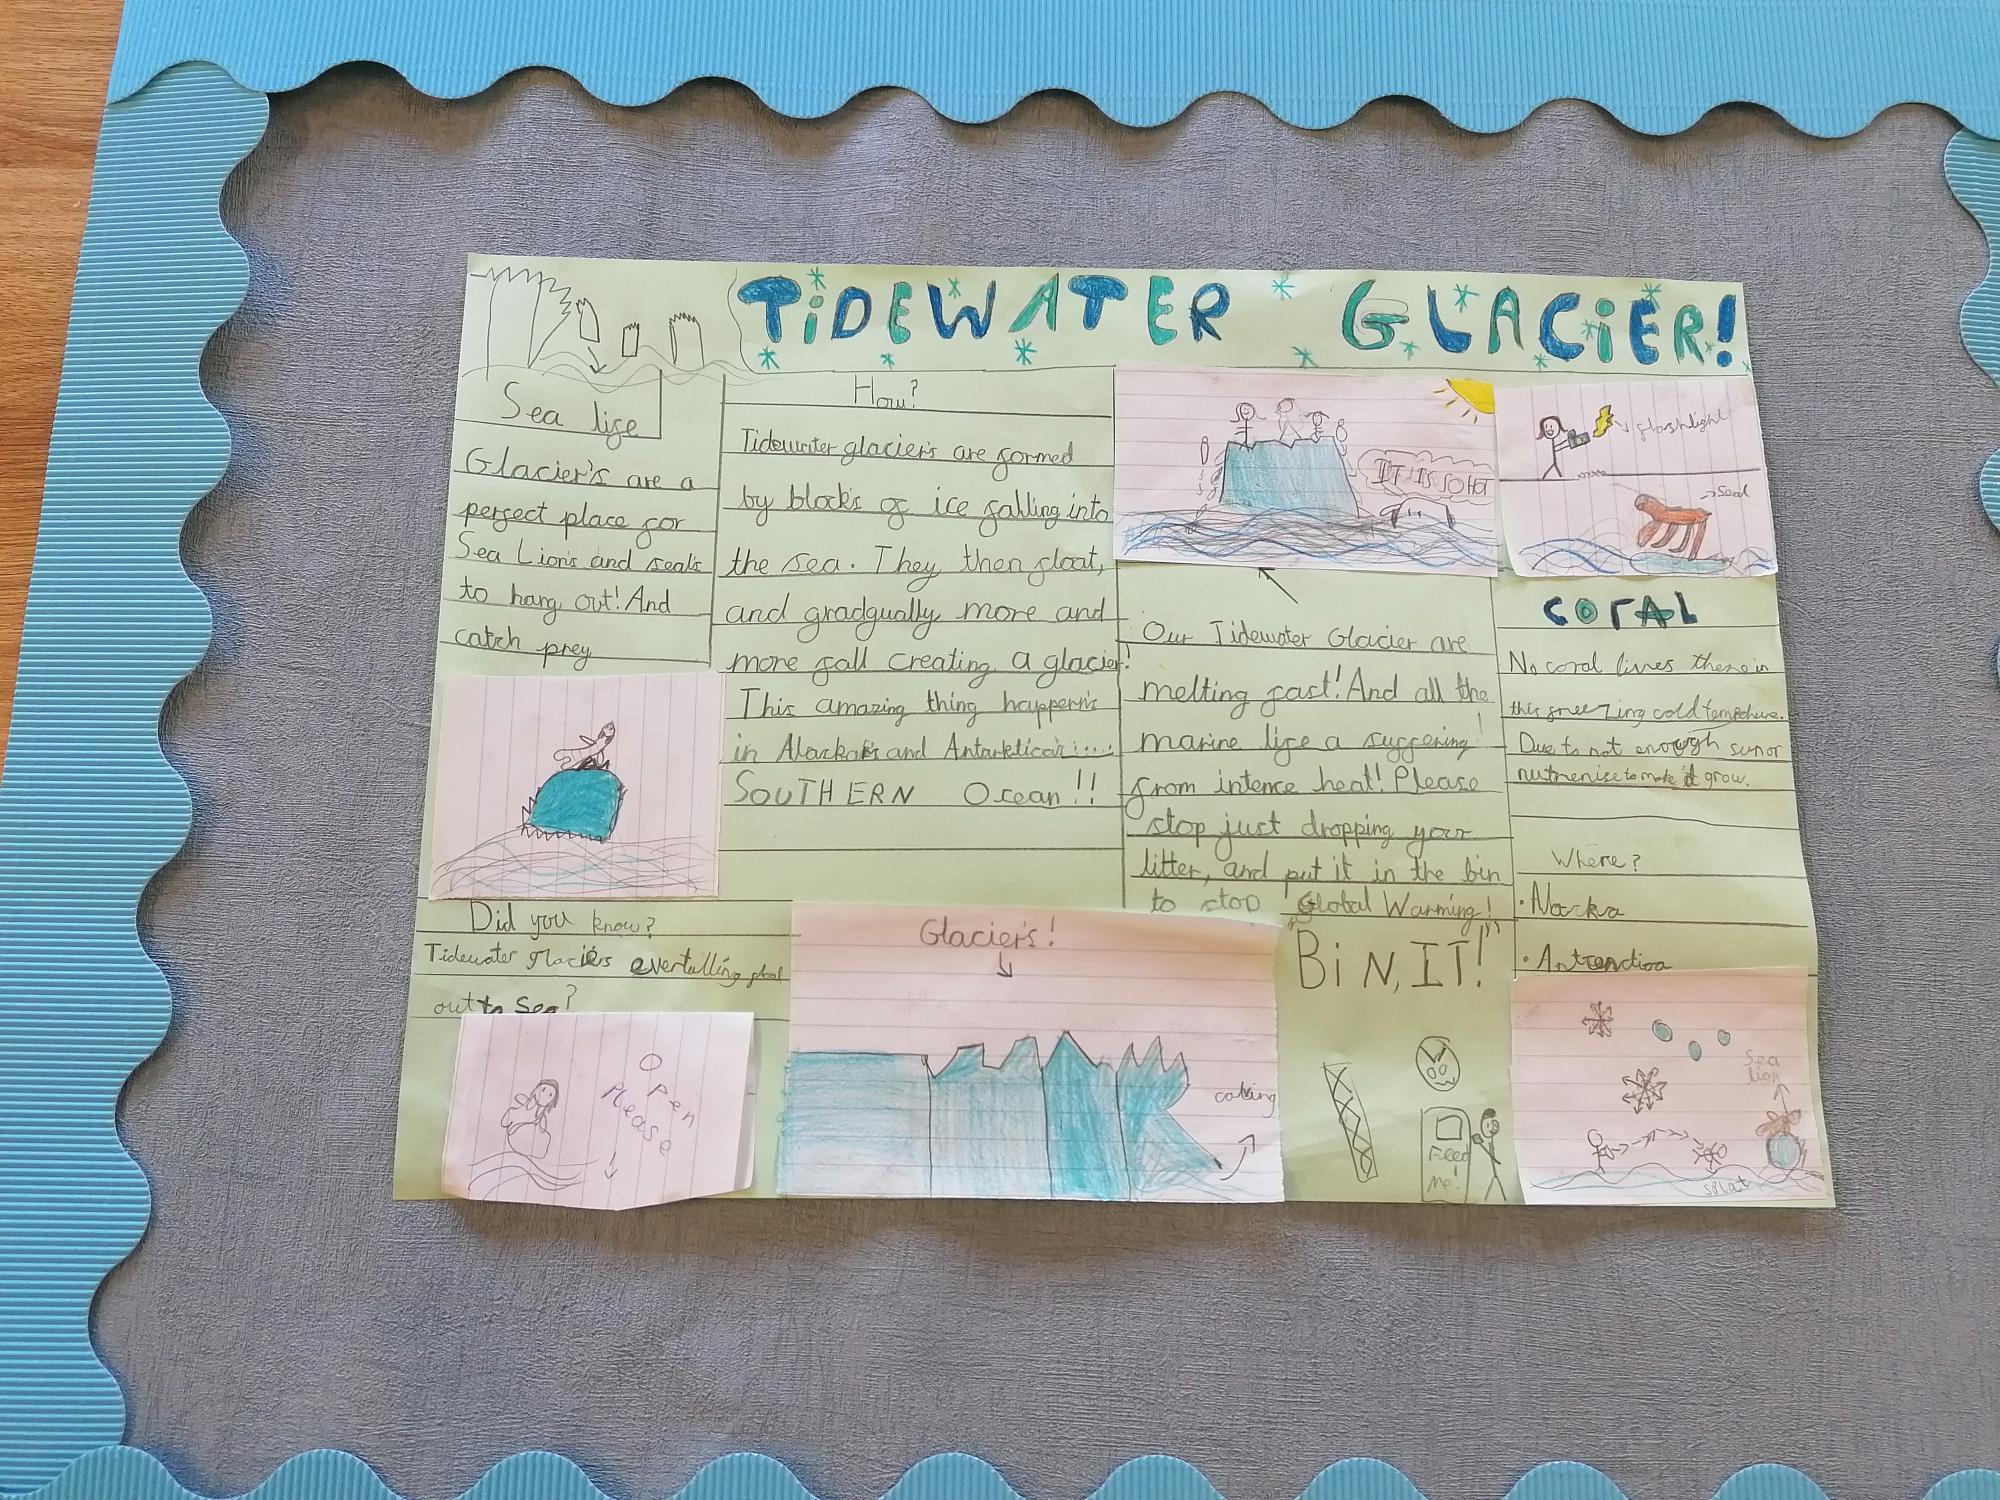 TiDEWATER GLACiER!
Sea life
Glacier's are a
perfect place for
Sea Lion's and seal's
to hang out! And
catch prey
How?
Tidewater glacier's are formed
by block's of ice falling into
the sea. They then float,
and gradgually more and
more fall creating a glacier!
This amazing thing happen's
in and
SOUTHERN Ocean!!
IT IS SO HOT
Our Tidewater Glacier are
melting fast! And all the
marine life a suffering!
from intence heat! Please
stop just dropping your
litter, and put it in the bin
to stop "Global Warming!"
BiN, IT!
Feed
Me!
flashlight
Seal
CORAL
No coral lives there in
this freezing cold
Due to not enough sun or
to make it grow.
Where?
• Alaska
•
Sea
lion
splat
Did you know?
Tidewater glaciers float
out to Sea?
Open
Please
Glacier's!